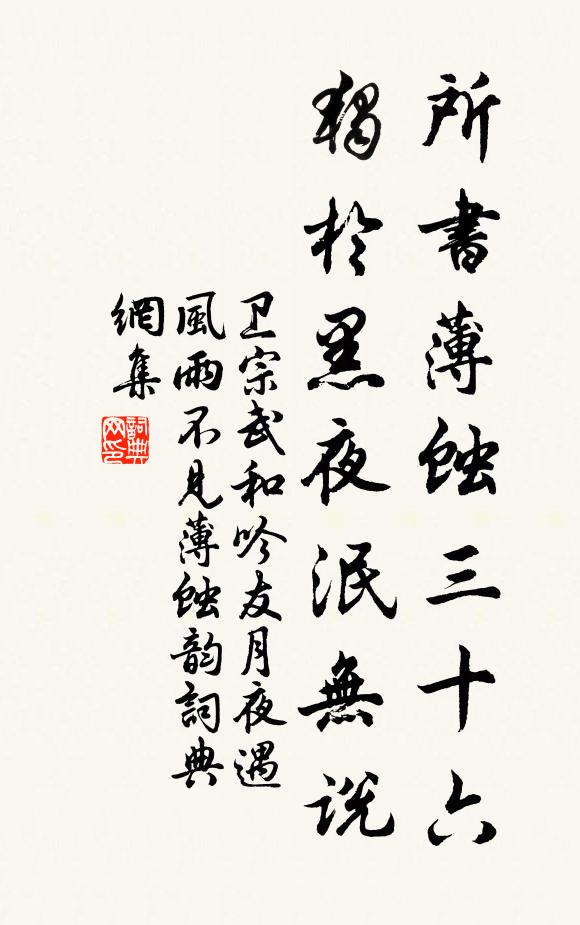 所書薄蝕三十六
獨於黑夜泯無説
卫宗武和吟友月夜遇
風雨不見薄蝕韵詞典
網集
詞典
网印